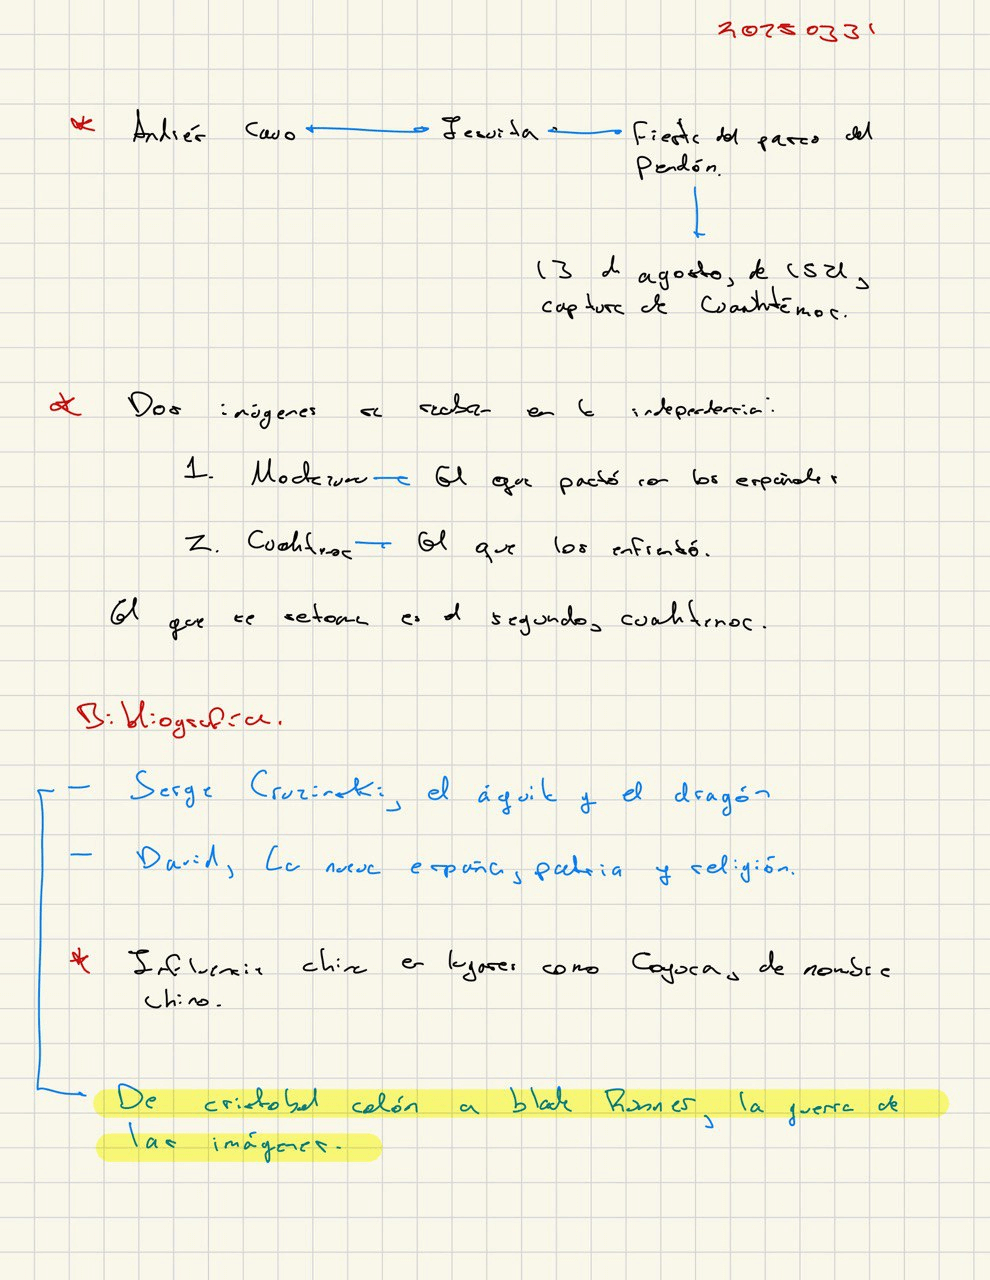 20250331
* Andrés Cavo ↔ Jesuita — Fiesta del paseo del
Pendón.
13 de agosto, de 1521,
captura de Cuauhtémoc.
* Dos imágenes se en la independencia:
1. Moctezuma — El que pactó con los españoles
2. Cuahtemoc — El que los enfrentó.
El que se retoma es el segundo, cuahtemoc.
Bibliografía.
- Serge Cruzinski, el águila y el dragón
- David, La nueva españa, patria y religión.
* Influencia china en lugares como Coyuca, de nombre
chino.
De cristobal colón a blade Runner, la guerra de
las imágenes.